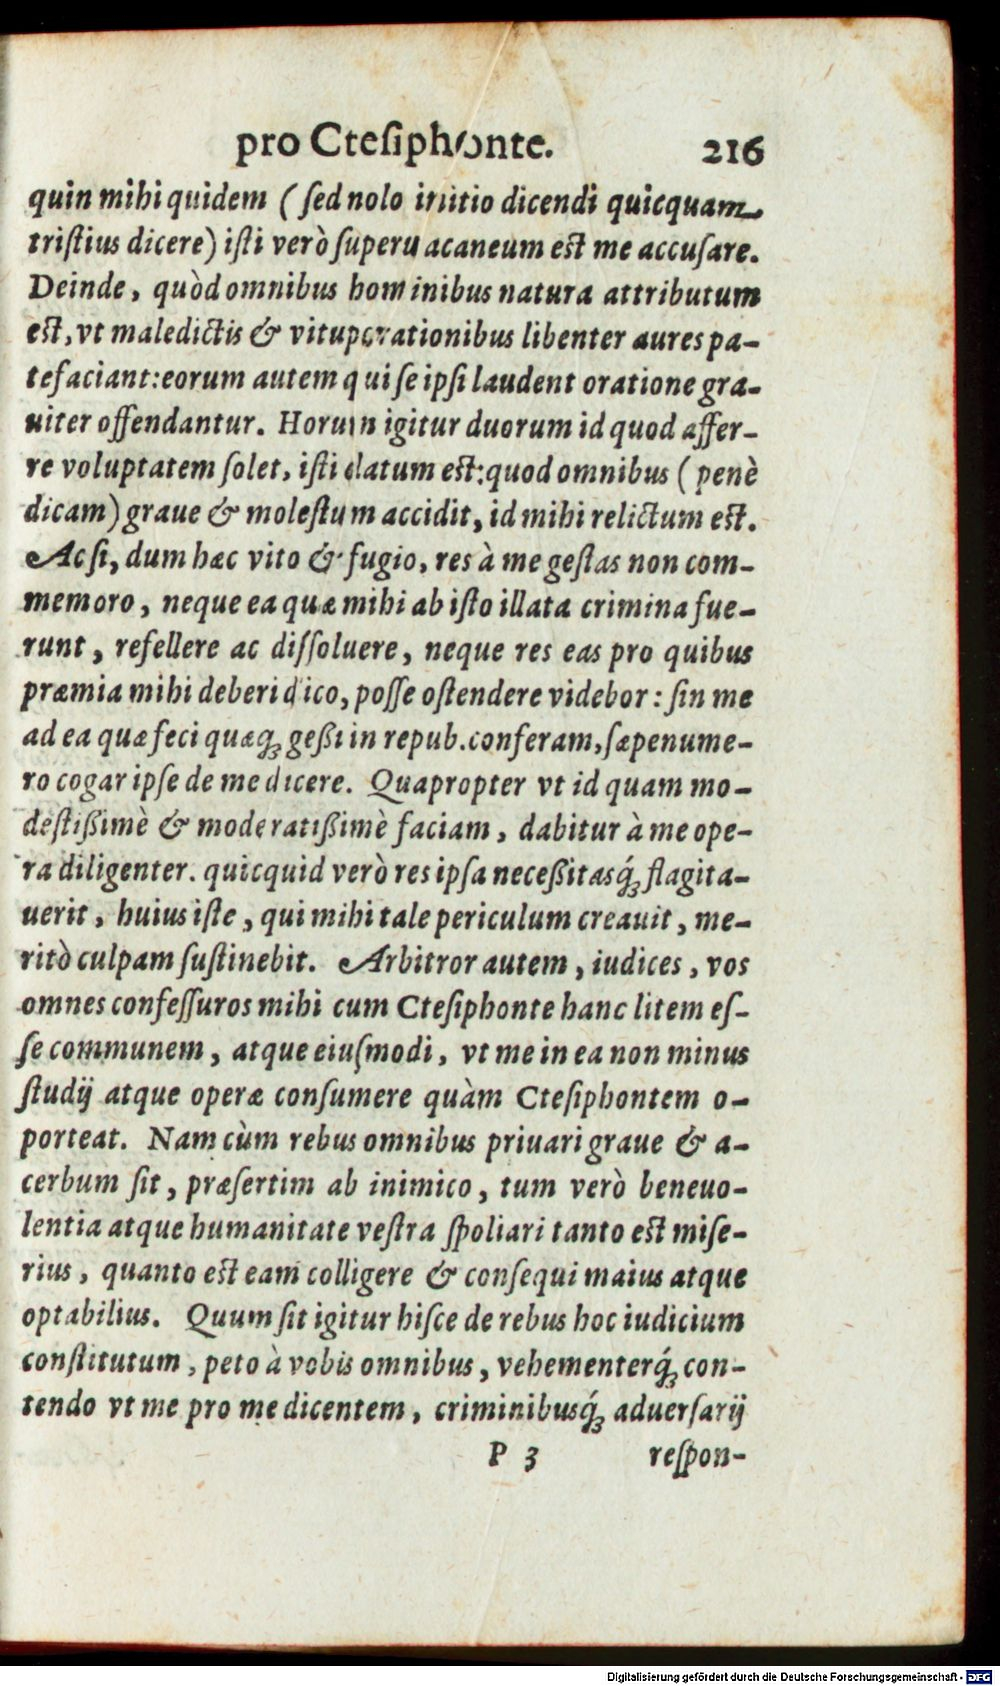 pro Cteſiphonte. 216
quin mihi quidem (ſed nolo initio dicendi quicquam
triſtius dicere) iſti verò ſuperuacaneum eſt me accuſare.
Deinde, quòd omnibus hominibus natura attributum
eſt, vt maledictis & vituperationibus libenter aures pa-
tefaciant: eorum autem qui ſe ipſi laudent oratione gra-
uiter offendantur. Horum igitur duorum id quod affer-
re voluptatem ſolet, iſti datum eſt: quod omnibus (penè
dicam) graue & moleſtum accidit, id mihi relictum eſt.
Ac ſi, dum hæc vito & fugio, res à me geſtas non com-
memoro, neque ea quæ mihi ab iſto illata crimina fue-
runt, refellere ac diſſoluere, neque res eas pro quibus
præmia mihi deberi dico, poſſe oſtendere videbor: ſin me
ad ea quæ feci quæq; geßi in repub. conferam, ſæpenume-
ro cogar ipſe de me dicere. Quapropter vt id quam mo-
deſtißimè & moderatißimè faciam, dabitur à me ope-
ra diligenter. quicquid verò res ipſa neceßitasq́; flagita-
uerit, huius iſte, qui mihi tale periculum creauit, me-
ritò culpam ſuſtinebit. Arbitror autem, iudices, vos
omnes confeſſuros mihi cum Cteſiphonte hanc litem eſ-
ſe communem, atque eiuſmodi, vt me in ea non minus
ſtudij atque operæ conſumere quàm Cteſiphontem o-
porteat. Nam cùm rebus omnibus priuari graue & a-
cerbum ſit, præſertim ab inimico, tum verò beneuo-
lentia atque humanitate veſtra ſpoliari tanto eſt miſe-
rius, quanto eſt eam colligere & conſequi maius atque
optabilius. Quum ſit igitur hiſce de rebus hoc iudicium
conſtitutum, peto à vobis omnibus, vehementerq́; con-
tendo vt me pro me dicentem, criminibusq́; aduerſarij
P 3 reſpon-
Digitalisierung gefördert durch die Deutsche Forschungsgemeinschaft - DFG